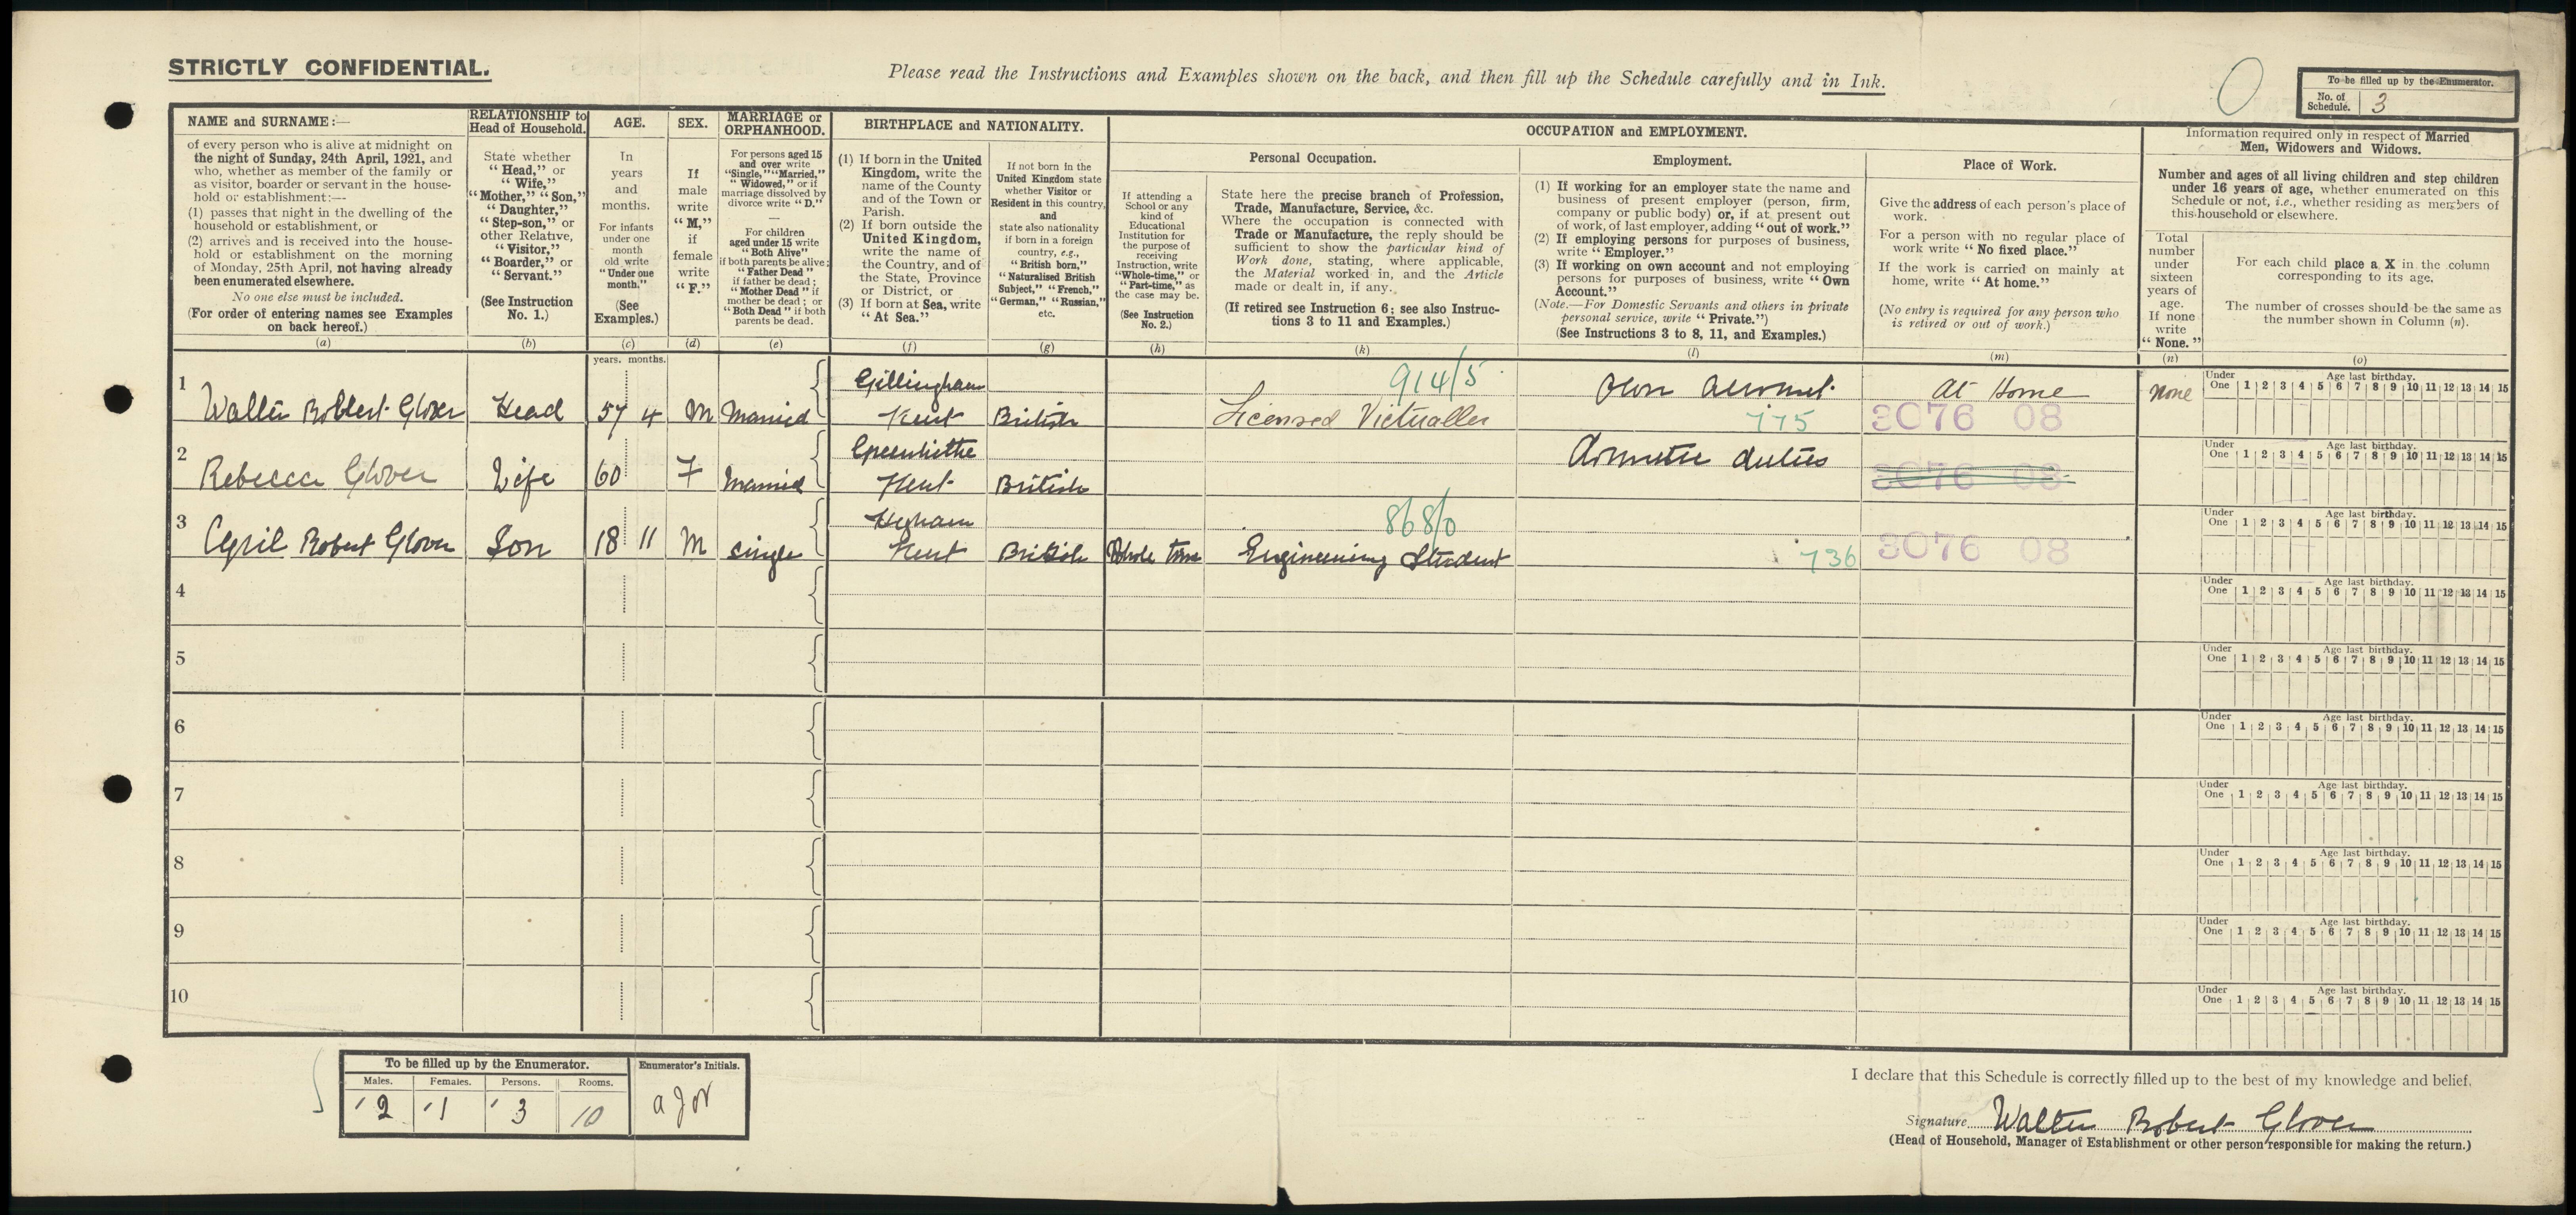 STRICTLY CONFIDENTIAL.
Please read the Instructions and Examples shown on the back, and then fill up the Schedule carefully and in Ink.
0
To be filled up by the Enumerator.
No. of Schedule. 3
NAME and SURNAME:—
of every person who is alive at midnight on
the night of Sunday, 24th April, 1921, and
who, whether as member of the family or
as visitor, boarder or servant in the house-
hold or establishment:—
(1) passes that night in the dwelling of the
household or establishment, or
(2) arrives and is received into the house-
hold or establishment on the morning
of Monday, 25th April, not having already
been enumerated elsewhere.
No one else must be included.
(For order of entering names see Examples
on back hereof.)
(a)
RELATIONSHIP to
Head of Household.
State whether
“Head,” or
“Wife,”
“Mother,” “Son,”
“Daughter,”
“Step-son,” or
other Relative,
“Visitor,”
“Boarder,” or
“Servant.”
(See Instruction
No. 1.)
(b)
AGE.
In
years
and
months.
For infants
under one
month
old write
“Under one
month.”
(See
Examples.)
(c)
SEX.
If
male
write
“M,”
if
female
write
“F.”
(d)
MARRIAGE or
ORPHANHOOD.
For persons aged 15
and over write
“Single,” “Married,”
“Widowed,” or if
marriage dissolved by
divorce write “D.”
—
For children
aged under 15 write
“Both Alive”
if both parents be alive;
“Father Dead”
if father be dead;
“Mother Dead” if
mother be dead; or
“Both Dead” if both
parents be dead.
(e)
BIRTHPLACE and NATIONALITY.
(1) If born in the United
Kingdom, write the
name of the County
and of the Town or
Parish.
(2) If born outside the
United Kingdom,
write the name of
the Country, and of
the State, Province
or District, or
(3) If born at Sea, write
“At Sea.”
(f)
If not born in the
United Kingdom state
whether Visitor or
Resident in this country,
and
state also nationality
if born in a foreign
country, e.g.,
“British born,”
“Naturalised British
Subject,” “French,”
“German,” “Russian,”
etc.
(g)
OCCUPATION and EMPLOYMENT.
If attending a
School or any
kind of
Educational
Institution for
the purpose of
receiving
Instruction, write
“Whole-time,” or
“Part-time,” as
the case may be.
(See Instruction
No. 2.)
(h)
Personal Occupation.
State here the precise branch of Profession,
Trade, Manufacture, Service, &c.
Where the occupation is connected with
Trade or Manufacture, the reply should be
sufficient to show the particular kind of
Work done, stating, where applicable,
the Material worked in, and the Article
made or dealt in, if any.
(If retired see Instruction 6; see also Instruc-
tions 3 to 11 and Examples.)
(k)
Employment.
(1) If working for an employer state the name and
business of present employer (person, firm,
company or public body) or, if at present out
of work, of last employer, adding “out of work.”
(2) If employing persons for purposes of business,
write “Employer.”
(3) If working on own account and not employing
persons for purposes of business, write “Own
Account.”
(Note.—For Domestic Servants and others in private
personal service, write “Private.”)
(See Instructions 3 to 8, 11, and Examples.)
(l)
Place of Work.
Give the address of each person's place of
work.
For a person with no regular place of
work write “No fixed place.”
If the work is carried on mainly at
home, write “At home.”
(No entry is required for any person who
is retired or out of work.)
(m)
Information required only in respect of Married
Men, Widowers and Widows.
Number and ages of all living children and step children
under 16 years of age, whether enumerated on this
Schedule or not, i.e., whether residing as members of
this household or elsewhere.
Total
number
under
sixteen
years of
age.
If none
write
“None.”
(n)
For each child place a X in the column
corresponding to its age.
The number of crosses should be the same as
the number shown in Column (n).
(o)
years. months.
1 Walter Robert Glover Head 57 4 M Married Gillingham Kent British 914/5 Licensed Victualler Own Account 775 At Home 3076 08 None
Under One Age last birthday. 1 2 3 4 5 6 7 8 9 10 11 12 13 14 15
2 Rebecca Glover Wife 60 F Married Greenhithe Kent British Domestic duties 3076 08
Under One Age last birthday. 1 2 3 4 5 6 7 8 9 10 11 12 13 14 15
3 Cyril Robert Glover Son 18 11 M Single Higham Kent British Whole time 868/0 Engineering Student 736 3076 08
Under One Age last birthday. 1 2 3 4 5 6 7 8 9 10 11 12 13 14 15
4
Under One Age last birthday. 1 2 3 4 5 6 7 8 9 10 11 12 13 14 15
5
Under One Age last birthday. 1 2 3 4 5 6 7 8 9 10 11 12 13 14 15
6
Under One Age last birthday. 1 2 3 4 5 6 7 8 9 10 11 12 13 14 15
7
Under One Age last birthday. 1 2 3 4 5 6 7 8 9 10 11 12 13 14 15
8
Under One Age last birthday. 1 2 3 4 5 6 7 8 9 10 11 12 13 14 15
9
Under One Age last birthday. 1 2 3 4 5 6 7 8 9 10 11 12 13 14 15
10
Under One Age last birthday. 1 2 3 4 5 6 7 8 9 10 11 12 13 14 15
To be filled up by the Enumerator.
Males. Females. Persons. Rooms.
2 1 3 10
Enumerator's Initials.
I declare that this Schedule is correctly filled up to the best of my knowledge and belief.
Signature Walter Robert Glover
(Head of Household, Manager of Establishment or other person responsible for making the return.)